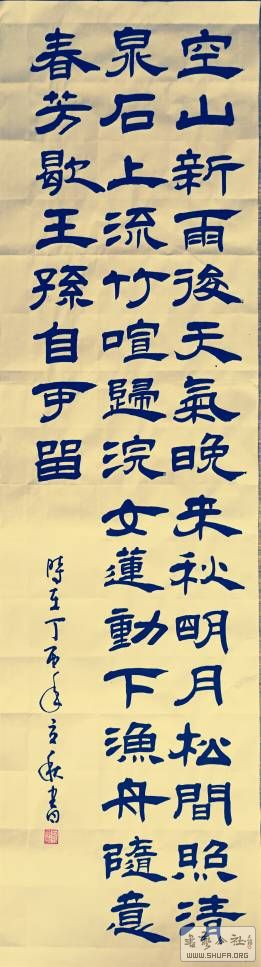 空山新雨後天氣晚来秋明月松間照清
泉石上流竹喧歸浣女蓮動下漁舟隨意
春芳歇王孫自可留
時在丁酉年立秋書
WWW.SHUFA.ORG